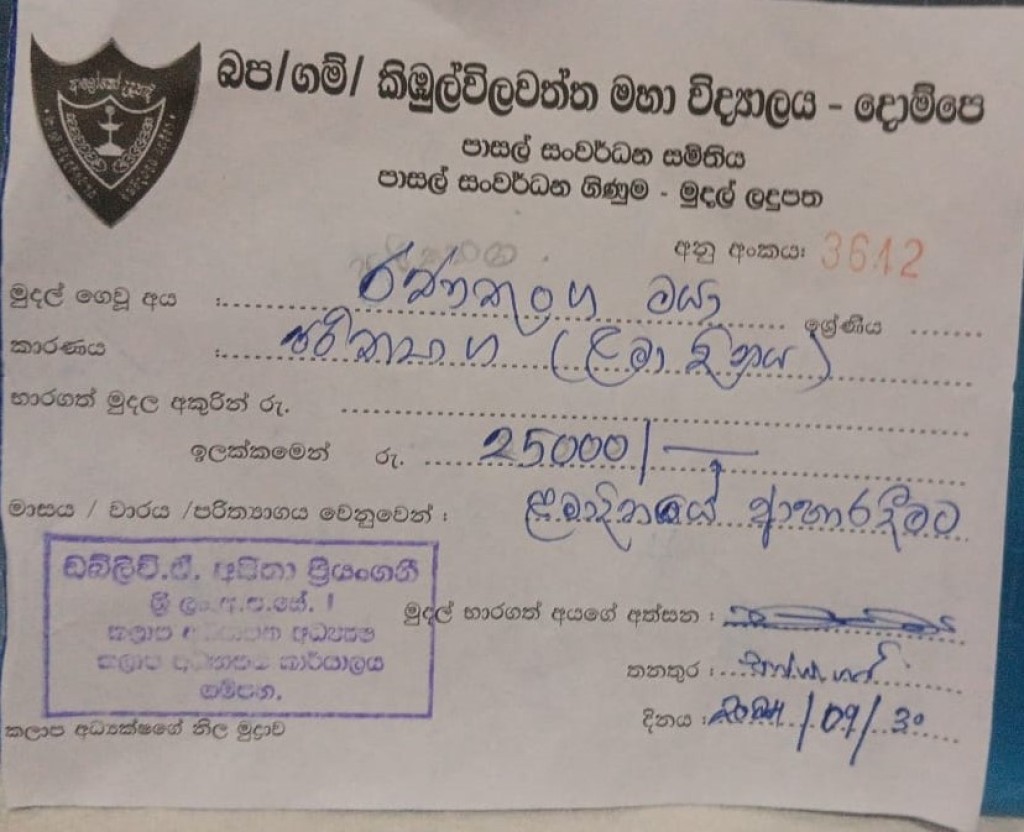 බප/ගම්/ කිඹුල්විලවත්ත මහා විද්‍යාලය - දොම්පෙ
පාසල් සංවර්ධන සමිතිය
පාසල් සංවර්ධන ගිණුම - මුදල් ලදුපත
අනු අංකය: 3612
මුදල් ගෙවූ අය :
මයා
ශ්‍රේණිය
කාරණය : පරිත්‍යාග (ළමා දිනය)
භාරගත් මුදල අකුරින් රු.
ඉලක්කමෙන් රු. 25000/-
මාසය / වාරය /පරිත්‍යාගය වෙනුවෙන් : ළමාදිනයේ ආහාරදීමට
ඩබ්ලිව්.ඒ. අජිතා ප්‍රියංගනී
ශ්‍රී ලං.අ.ප.සේ. I
කලාප අධ්‍යාපන අධ්‍යක්ෂ
කලාප අධ්‍යාපන කාර්යාලය
ගම්පහ.
මුදල් භාරගත් අයගේ අත්සන :
තනතුර :
දිනය : 2024/09/30
කලාප අධ්‍යක්ෂගේ නිල මුද්‍රාව